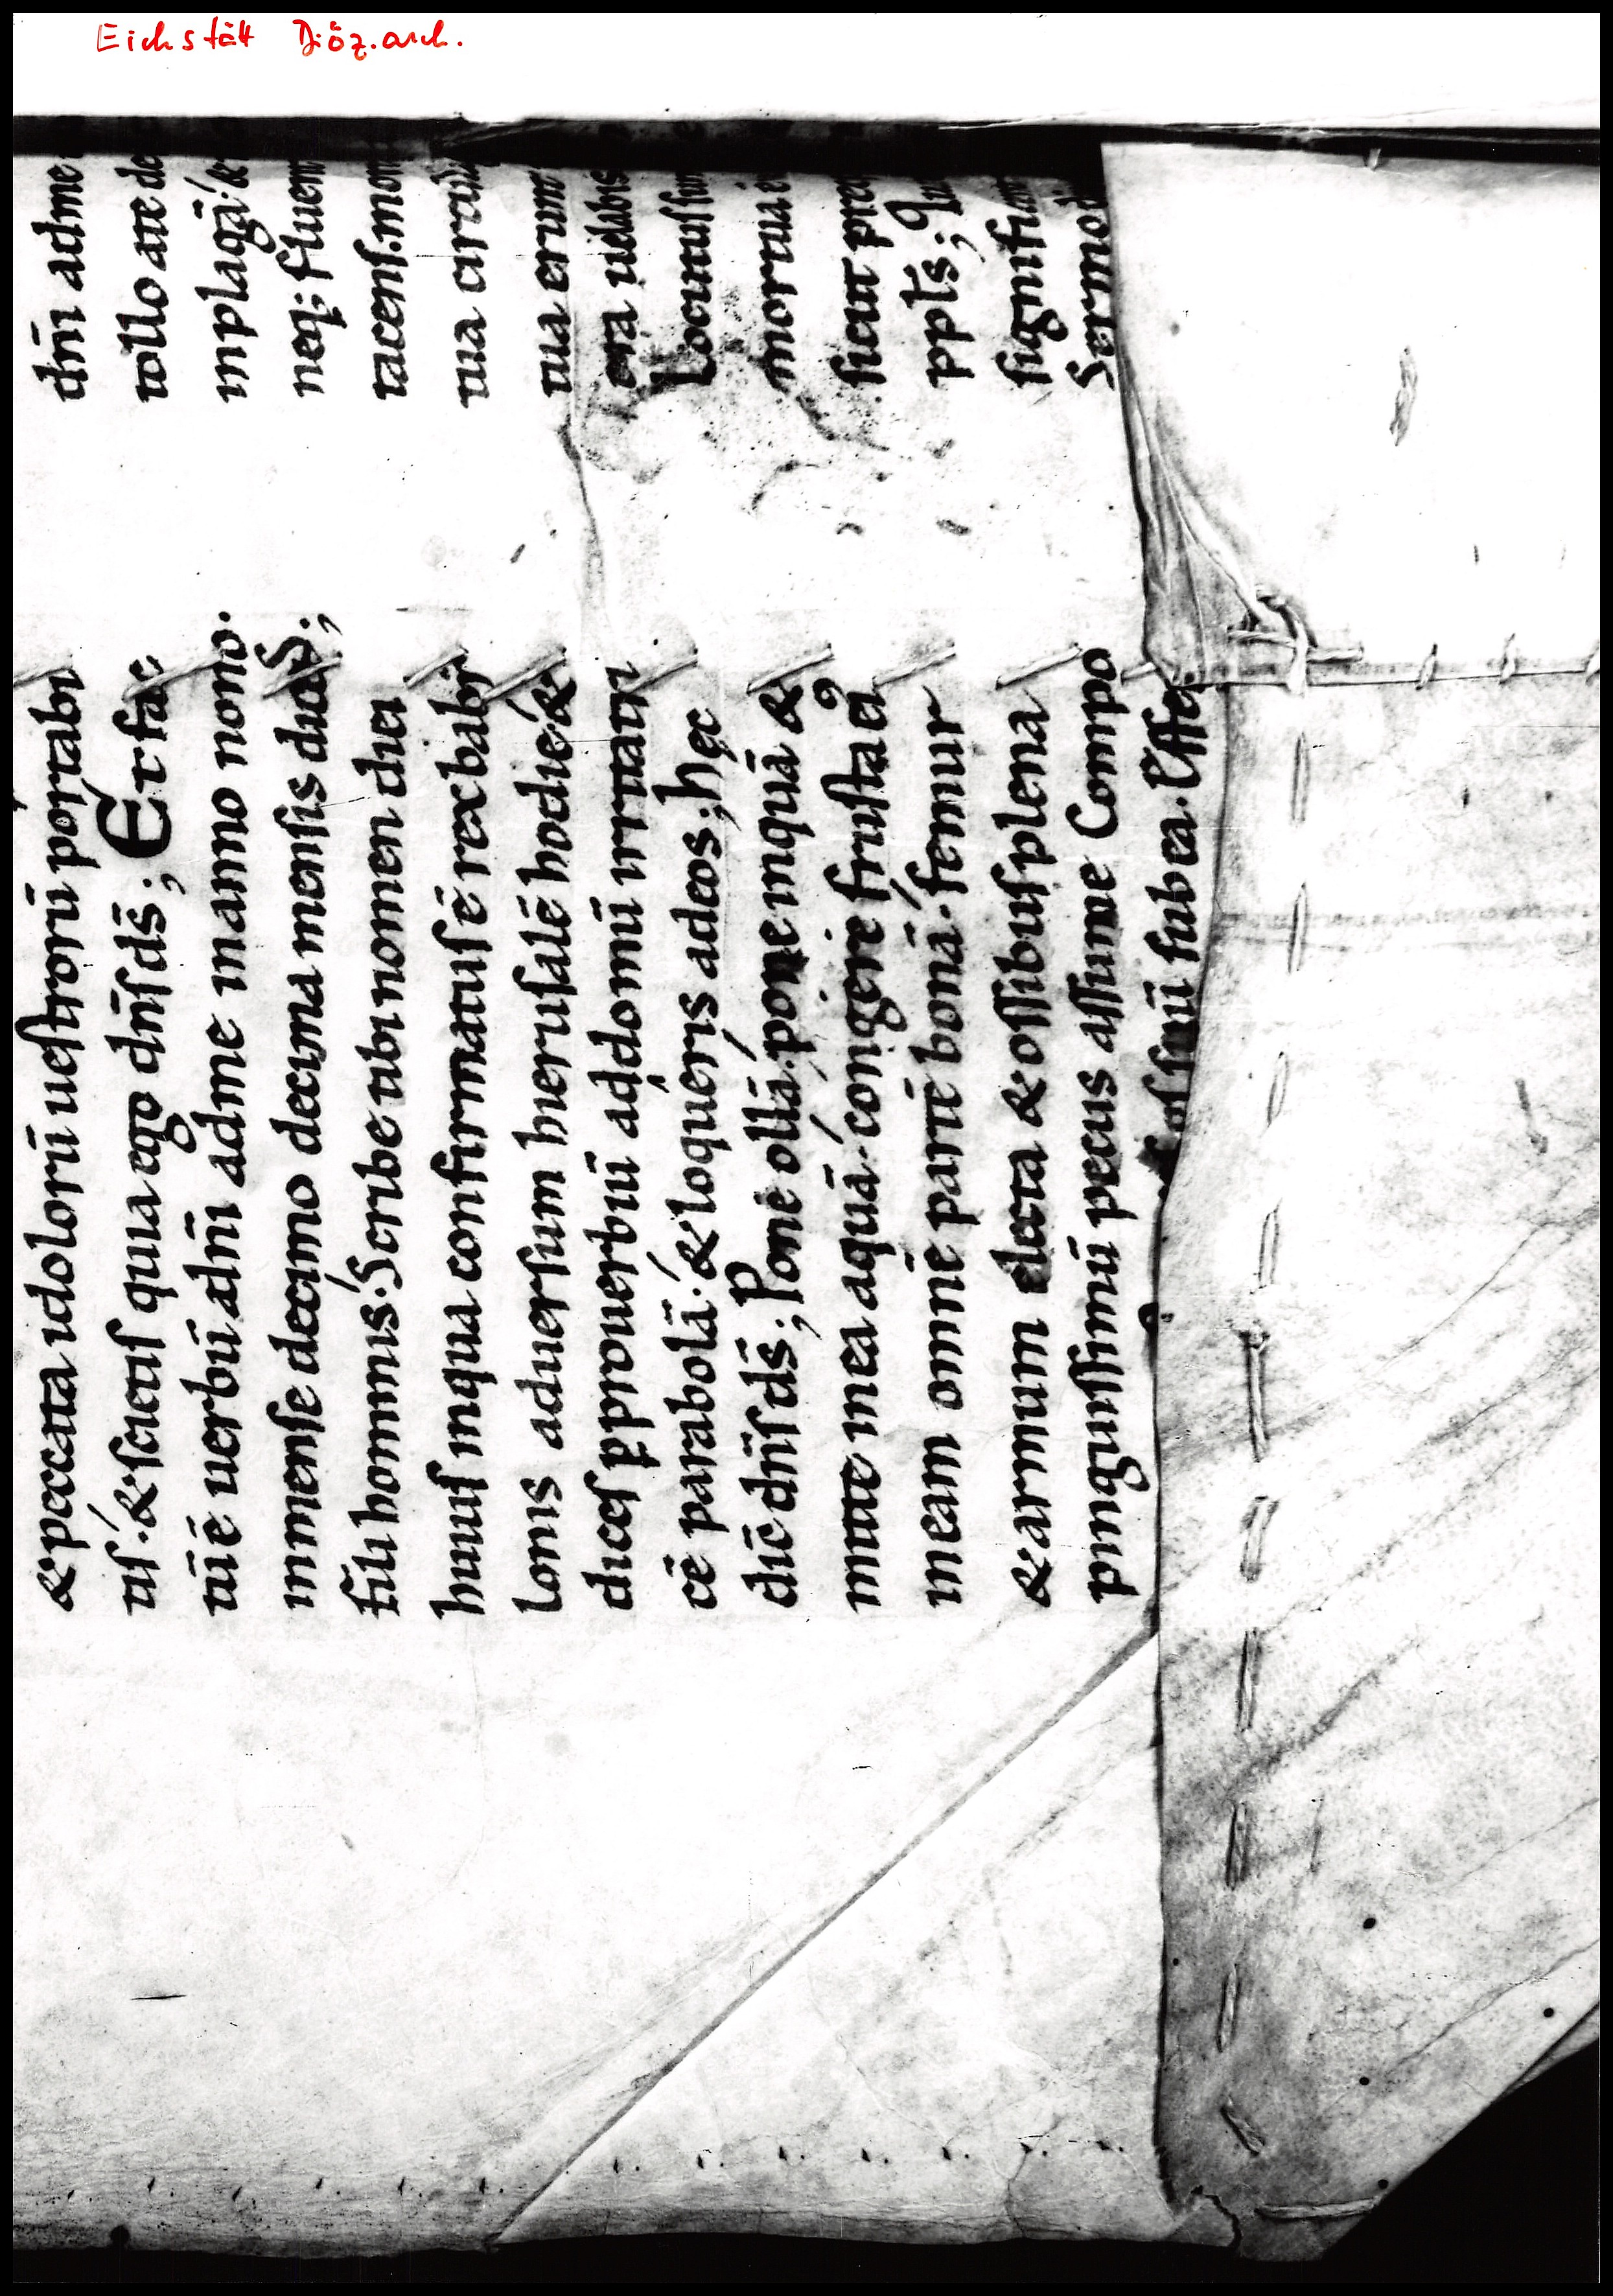 Eichstätt Diöz.arch.
& peccata idolorū uestrorū portabi
tis. & scietis quia ego dn̄s ds̄; Et fac
tū ē uerbū dn̄i ad me in anno nono.
in mense decimo decima mensis dicens;
Fili hominis. Scribe tibi nomen diei
huius in qua confirmatus ē rex babi
lonis aduersum hierusalē hodie. &
dices p̱ prouerbiū ad domū irritatri
cē parabolā. & loqueris ad eos; hęc
dic̄ dn̄s ds̄; Pone ollā. pone inquā &
mitte in ea aquā. congere frusta eiꝰ
in eam omnē partē bonā. femur
& armum electa & ossibus plena
pinguissimū pecus assume Compo
struū sub ea. Effer
dn̄i ad me
tollo a te de
in plagā. &
neq; fluen
tacens. mor
tua circūda
tua erunt
ora uelabis
Locutus sum
mortua ē
sicut prec
ppl̄s; Qua
significant
Sermo di